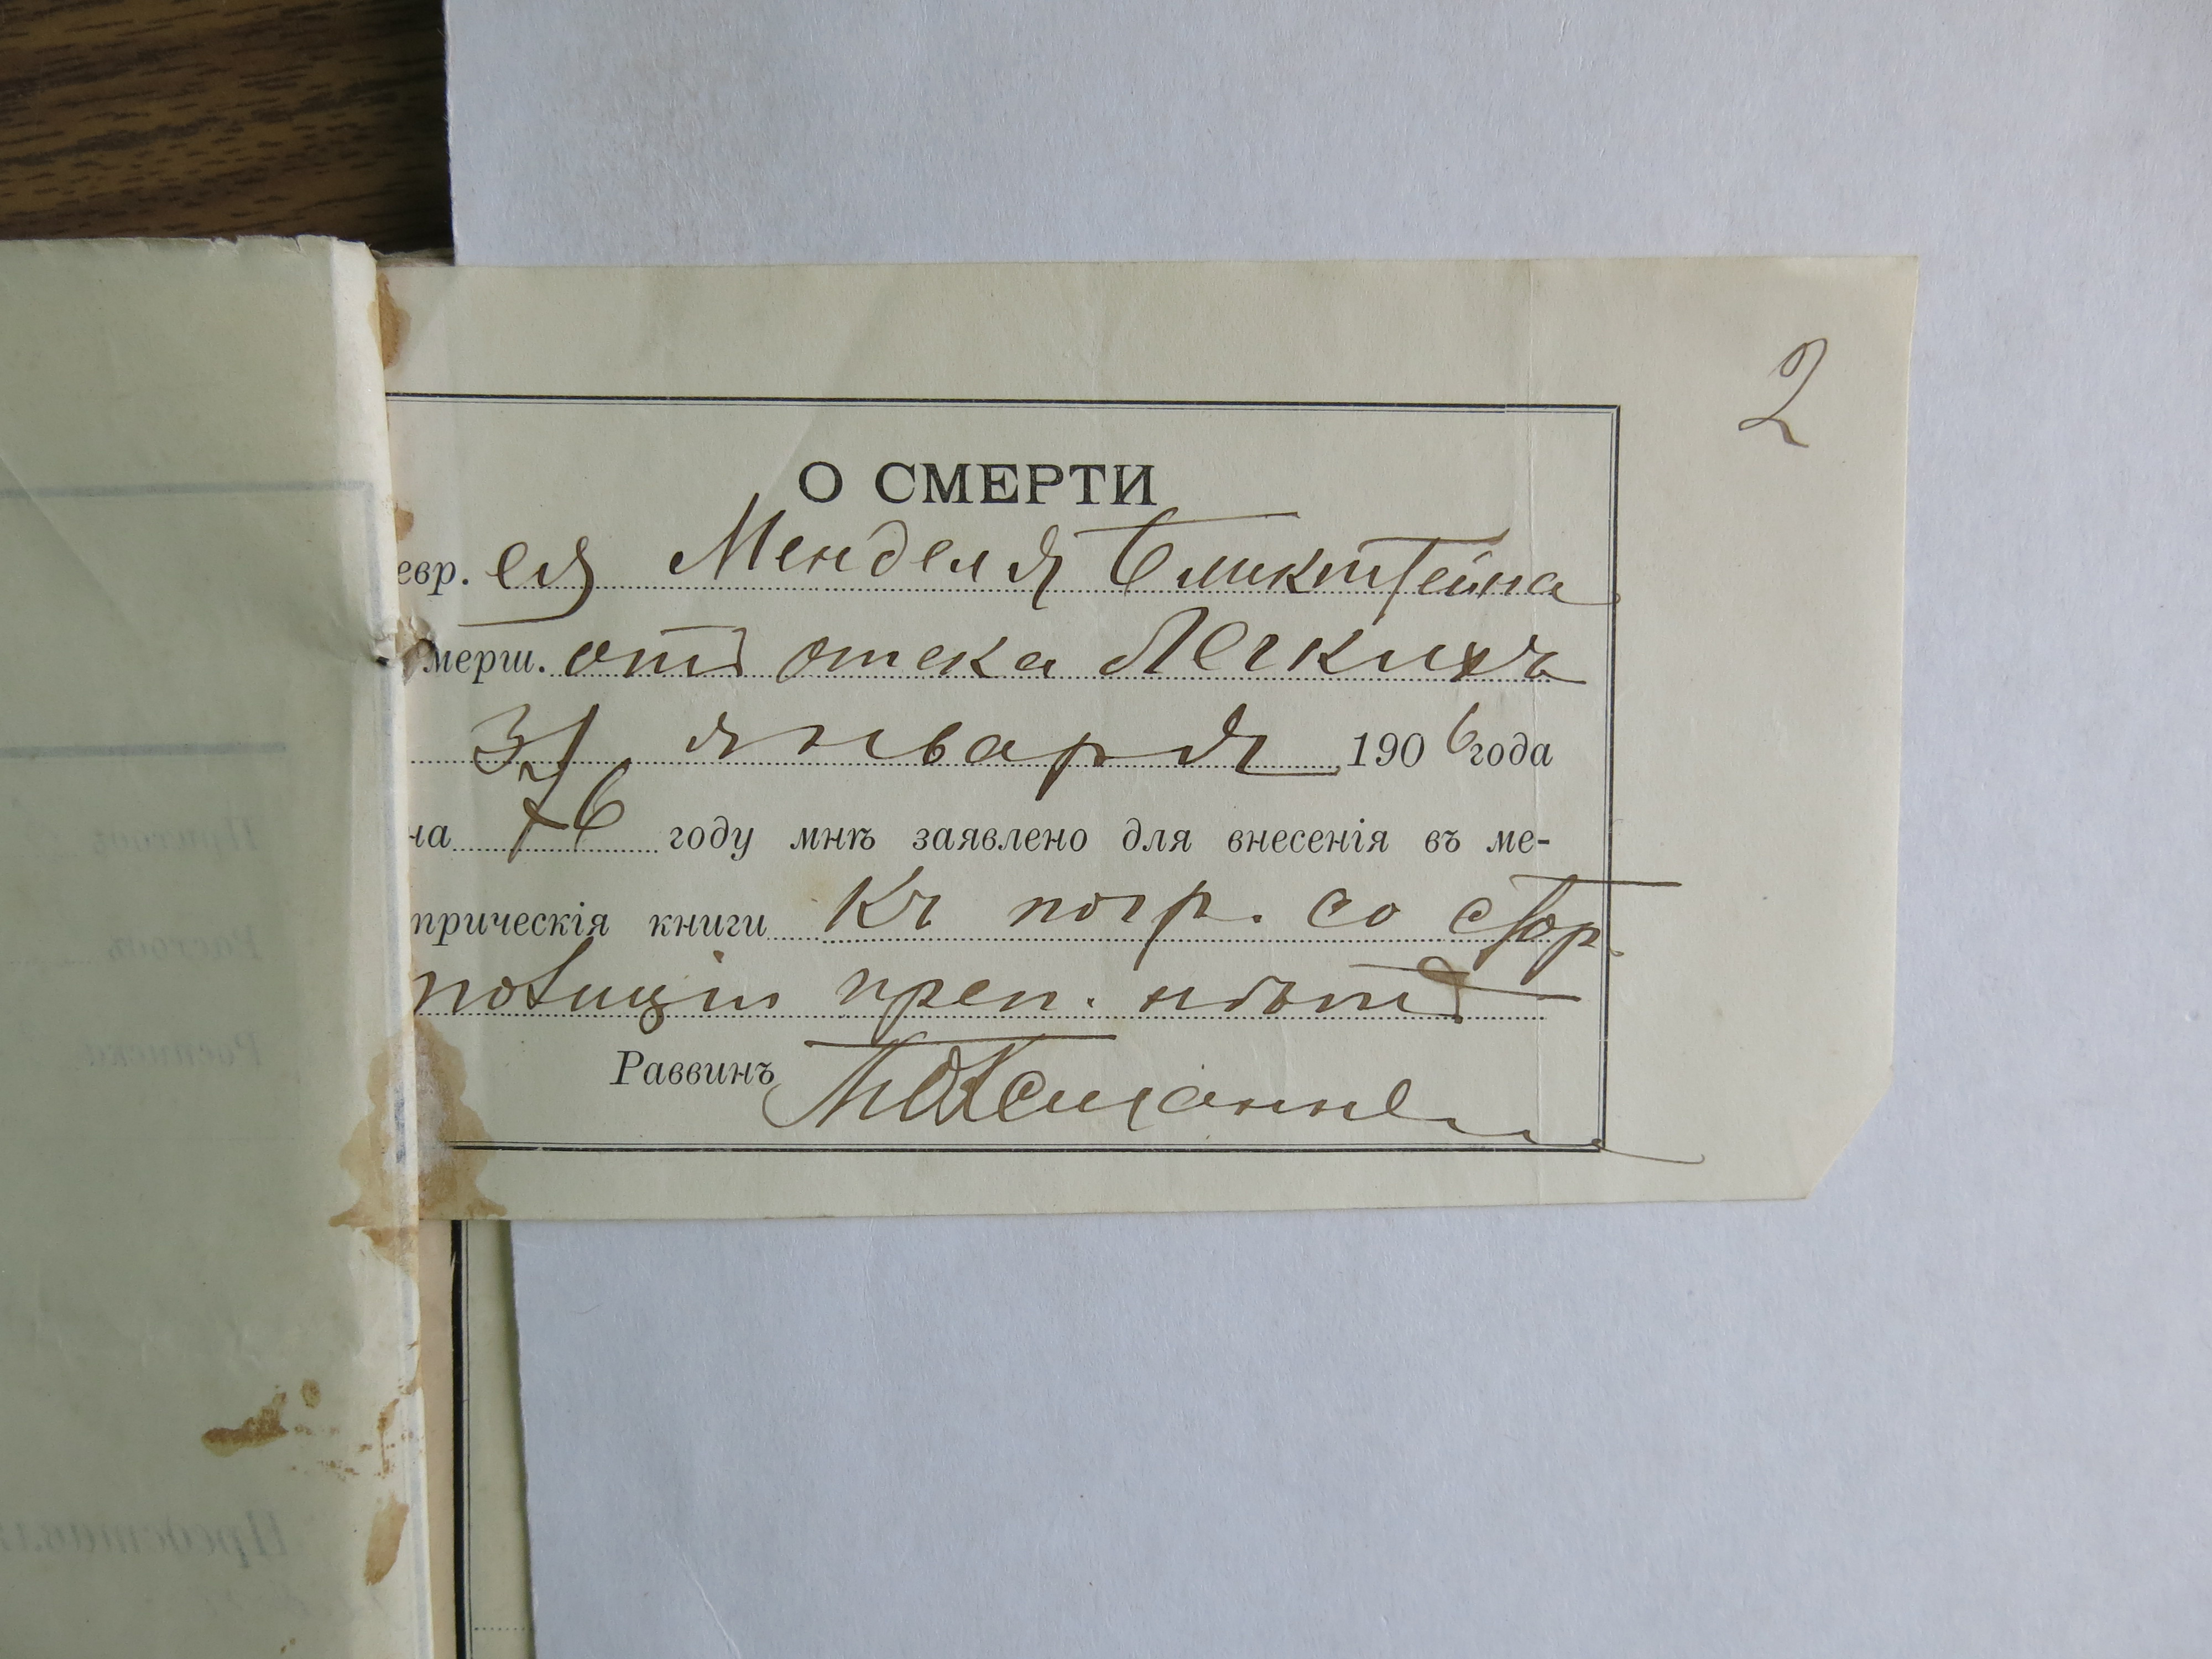 2
О СМЕРТИ
евр. ея Менделя Бликштейна
умерш. отъ отека Легкихъ
31 января 1906 года
на 76 году мнѣ заявлено для внесенія въ ме-
трическія книги Къ погр. со стор.
полиціи преп. нѣтъ
Раввинъ